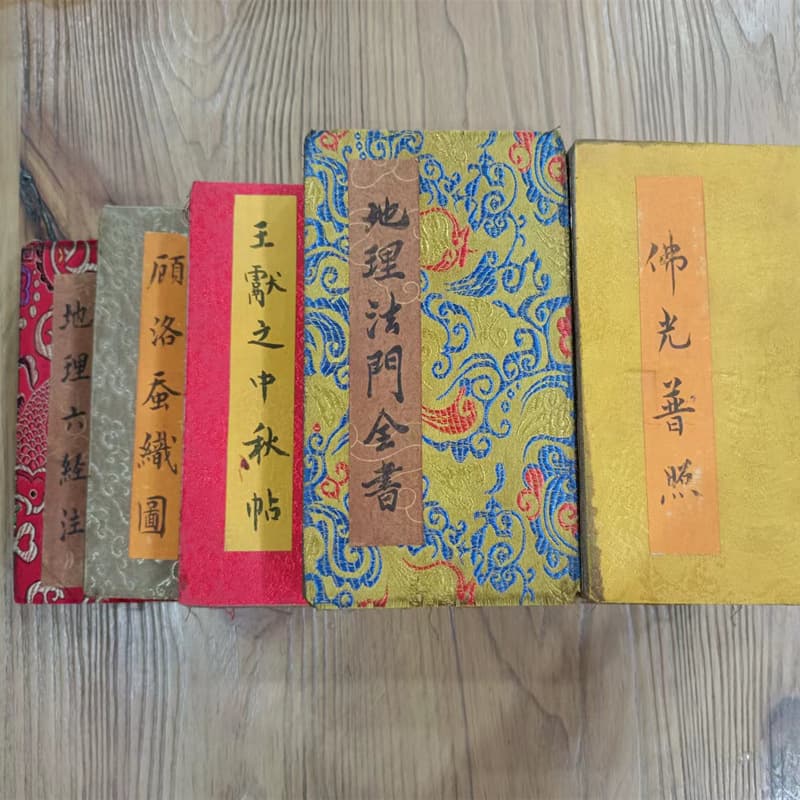 地理六经注
顾洛蚕織圖
王獻之中秋帖
地理法門全書
佛光普照